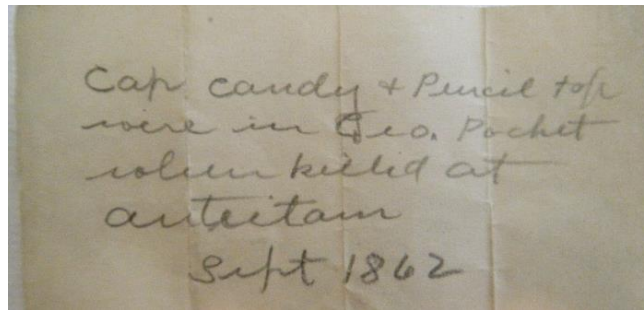 Cap candy + Pencil top
were in Geo. Pocket
when killed at
anteitam
Sept 1862